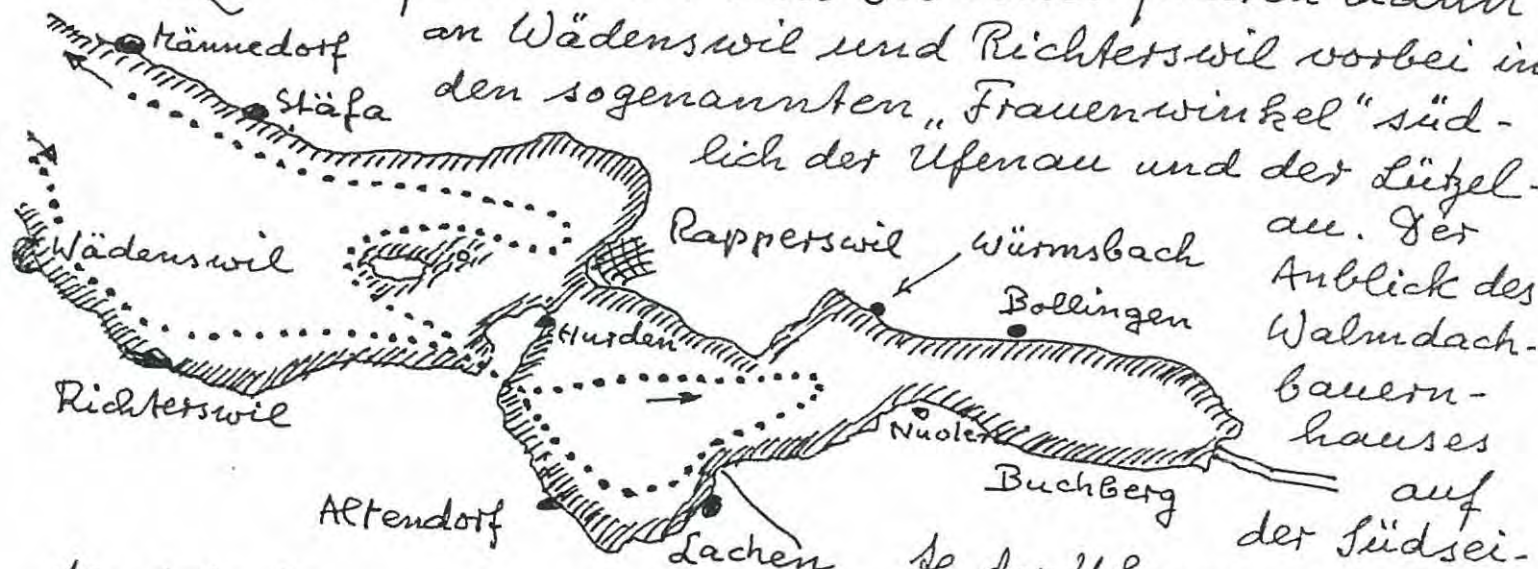 an Wädenswil und Richterswil vorbei in
den sogenannten „Frauenwinkel“ süd-
lich der Ufenau und der Lützel-
au. Der
Anblick des
Walmdach-
bauern-
hauses
auf
der Südsei-
Männedorf
Stäfa
Wädenswil
Richterswil
Rapperswil
Würmsbach
Bollingen
Hurden
Nuolen
Buchberg
Altendorf
Lachen